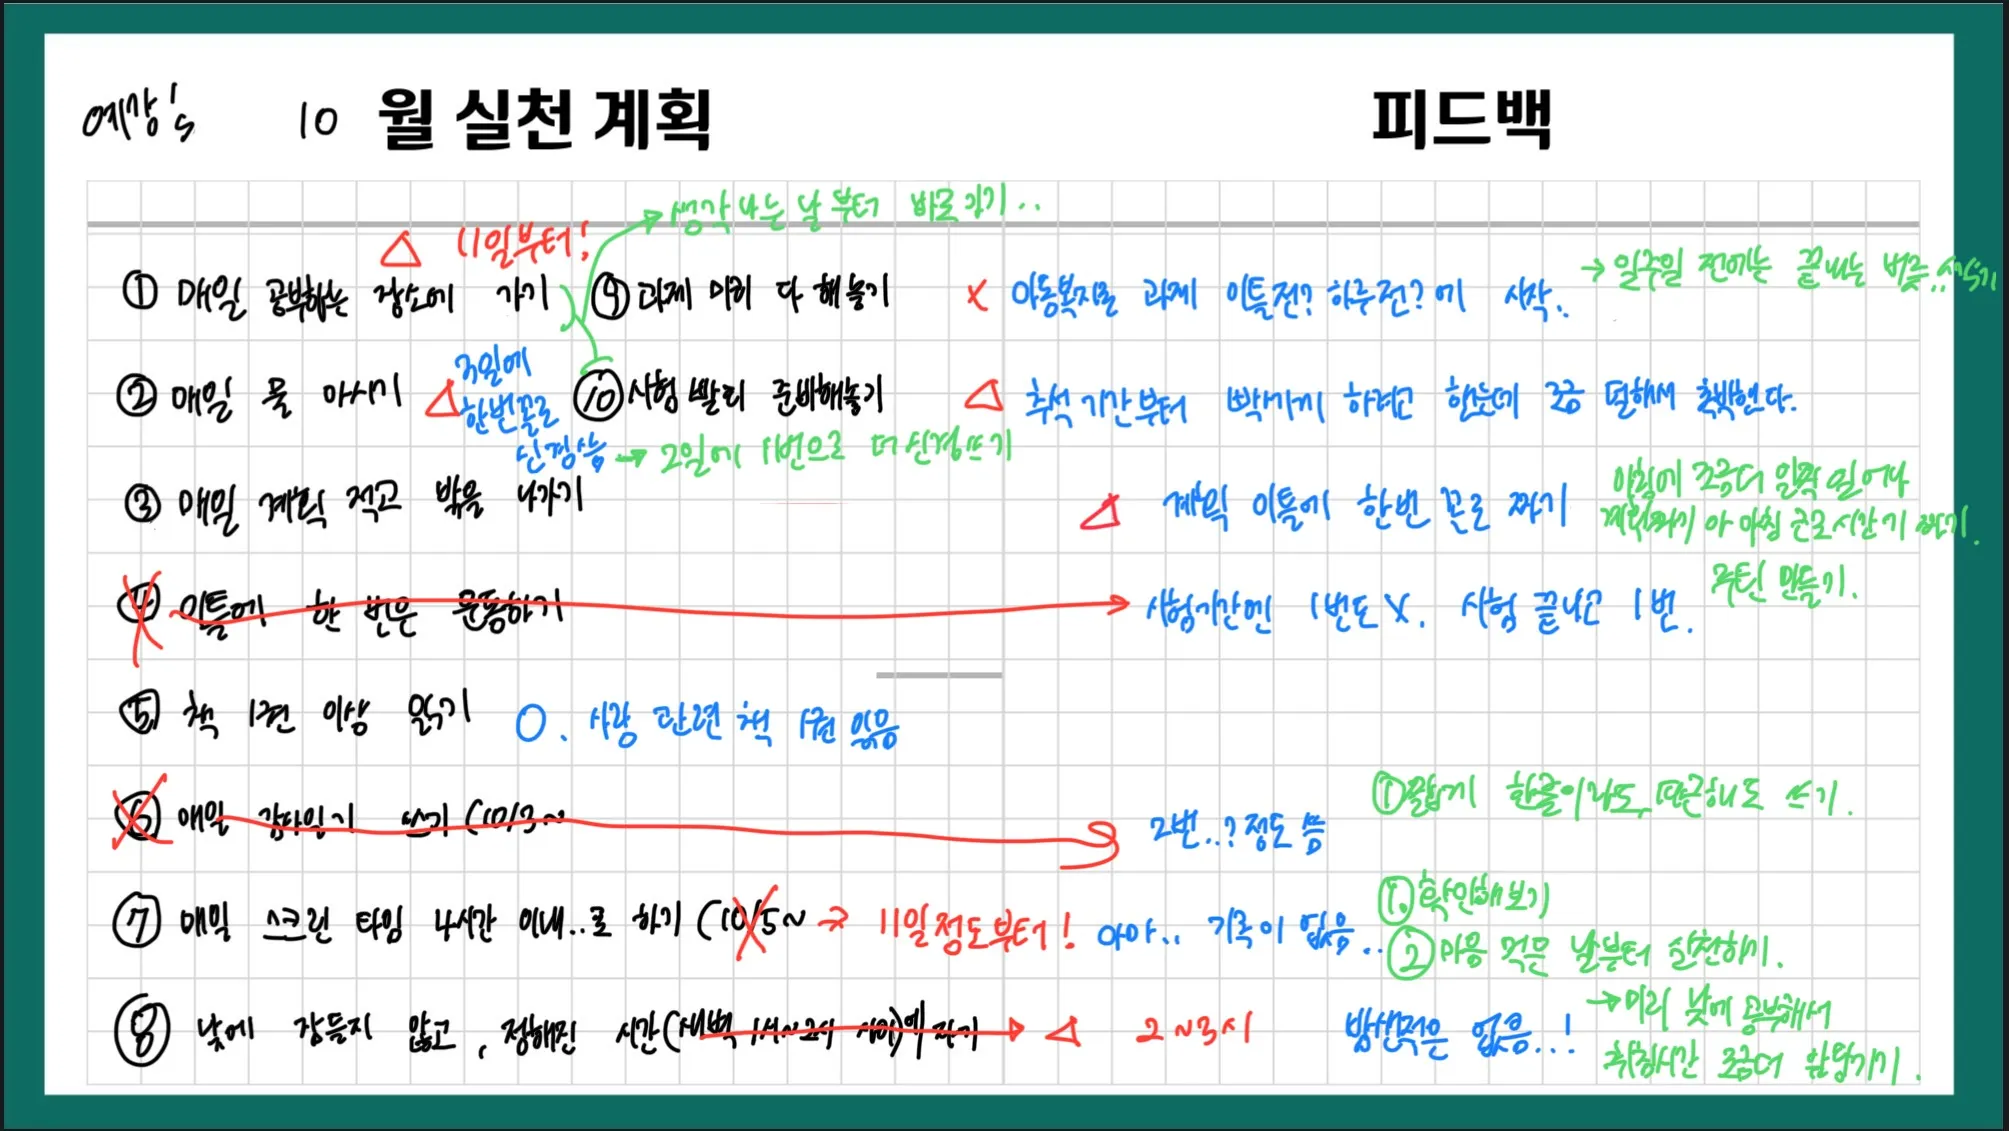 예강's 10 월 실천 계획 피드백
→ 생각나는 날부터 바로 가기..
△ 11일부터!
① 매일 공부하는 장소에 가기
⑨ 과제 미리 다 해놓기 X 아동복지론 과제 이틀전? 하루전?에 시작.
→ 일주일 전에는 끝내는 버릇..
② 매일 물 마시기 △ 3일에 한번꼴로 신경씀
→ 2일에 1번으로 더 신경쓰기
⑩ 시험 빨리 준비해놓기 △ 추석 기간부터 빡세게 하려고 했는데 조금 덜해서 촉박했다.
③ 매일 계획 적고 밖을 나가기 △ 계획 이틀에 한번 꼴로 짜기
아침에 조금더 일찍 일어나
계획짜기 아 아침 근로시간에 짜기.
루틴 만들기.
④ 이틀에 한 번은 운동하기 → 시험기간엔 1번도 X. 시험 끝나고 1번.
⑤ 책 1권 이상 읽기 O. 사랑 관련 책 1권 읽음
⑥ 매일 감사일기 쓰기 (10/3~ 2번..? 정도 씀
① 짧게 한줄이라도 만근해도 쓰기.
⑦ 매일 스크린 타임 4시간 이내..로 하기 (10/5~ → 11일정도부터! 아아.. 기록이 없음..
① 확인해보기
② 마음 먹은 날부터 실천하기.
⑧ 낮에 잠들지 않고, 정해진 시간(새벽 1시~2시 사이)에 자기 → △ 2~3시 밤샌적은 없음..!
→ 미리 낮에 공부해서
취침시간 조금더 앞당기기.